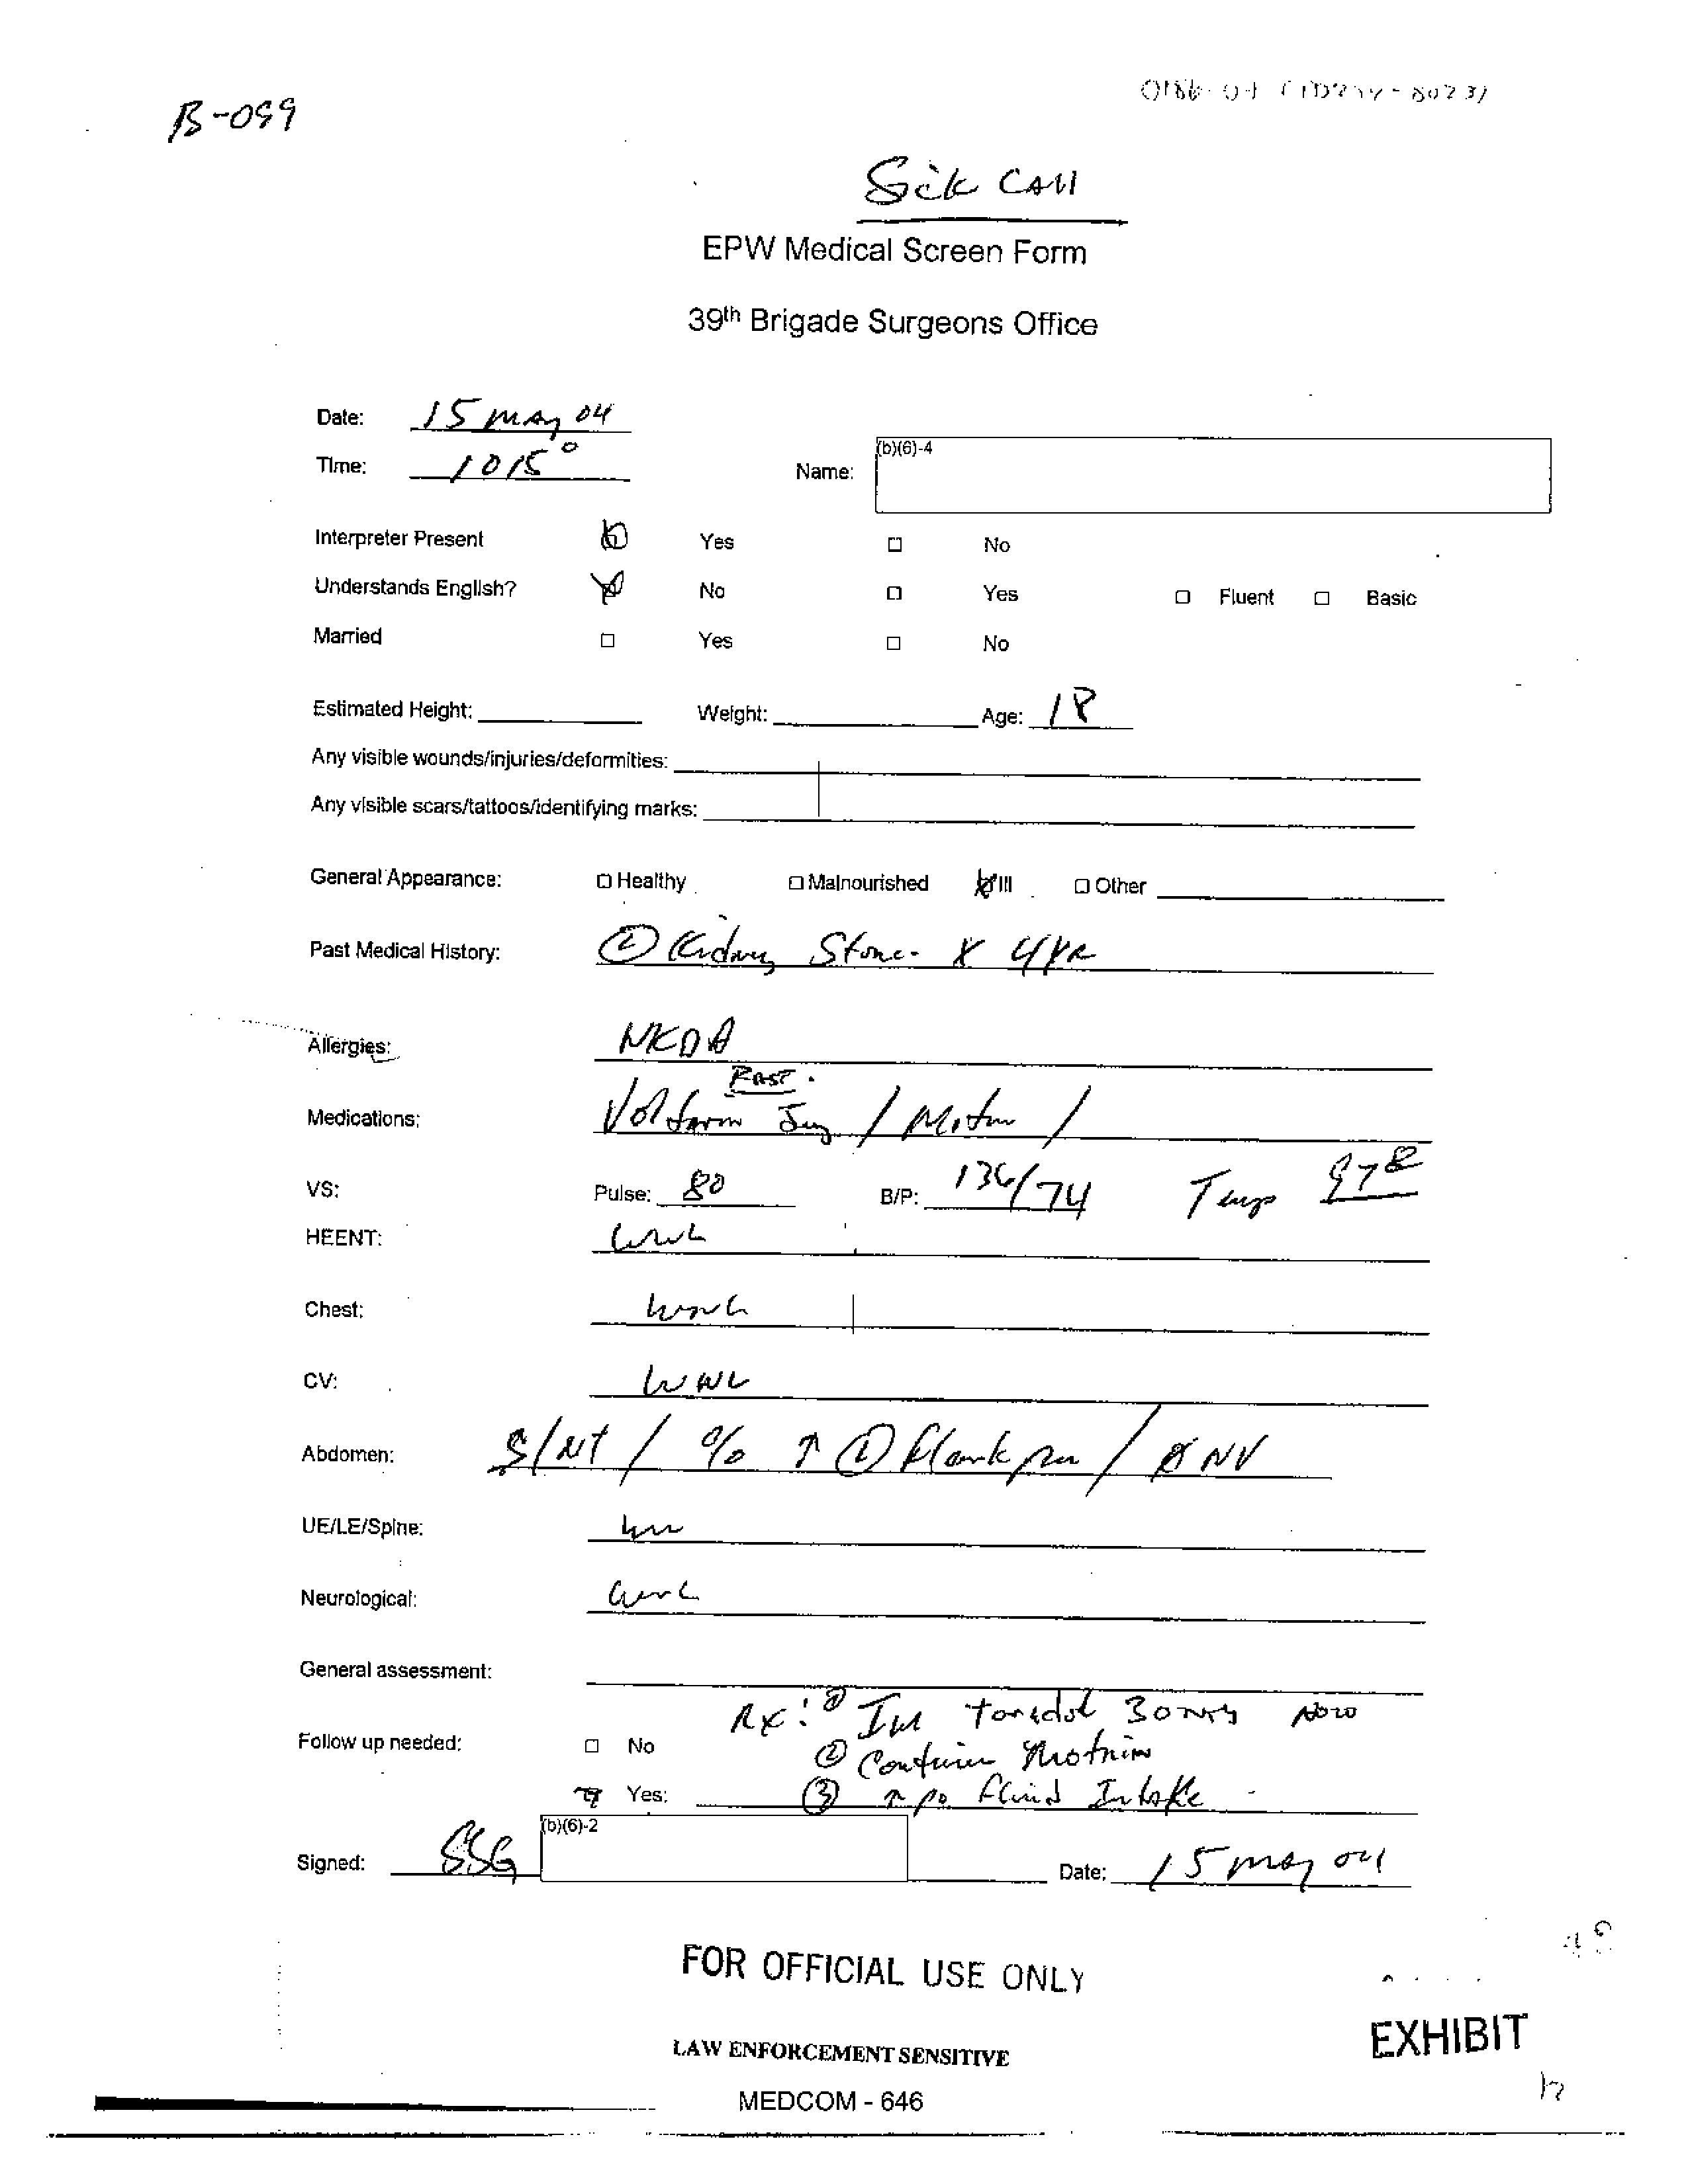 B-099
Sick Call
EPW Medical Screen Form
39th Brigade Surgeons Office
Date: 15 May 04
Time: 1015° Name: (b)(6)-4
Interpreter Present Yes □ No
Understands English? No □ Yes □ Fluent □ Basic
Married □ Yes □ No
Estimated Height: Weight: Age: 18
Any visible wounds/injuries/deformities:
Any visible scars/tattoos/identifying marks:
General Appearance: □ Healthy □ Malnourished Ill □ Other
Past Medical History: Ⓛ Kidney Stone X 4 YR
Allergies: NKDA
Past
Medications: / Motrin /
VS: Pulse: 80 B/P: 136/74 Temp 97⁸
HEENT: WNL
Chest: WNL
CV: WNL
Abdomen: S/NT / ↑ Ⓛ flank pain / Ø NV
UE/LE/Spine:
Neurological: WNL
General assessment:
Rx: ① IM toradol 30 mg Now
Follow up needed: □ No ② Continue Motrin
Yes: ③ ↑ po fluid Intake
Signed: SSG (b)(6)-2 Date: 15 May 04
FOR OFFICIAL USE ONLY
LAW ENFORCEMENT SENSITIVE
EXHIBIT
MEDCOM - 646